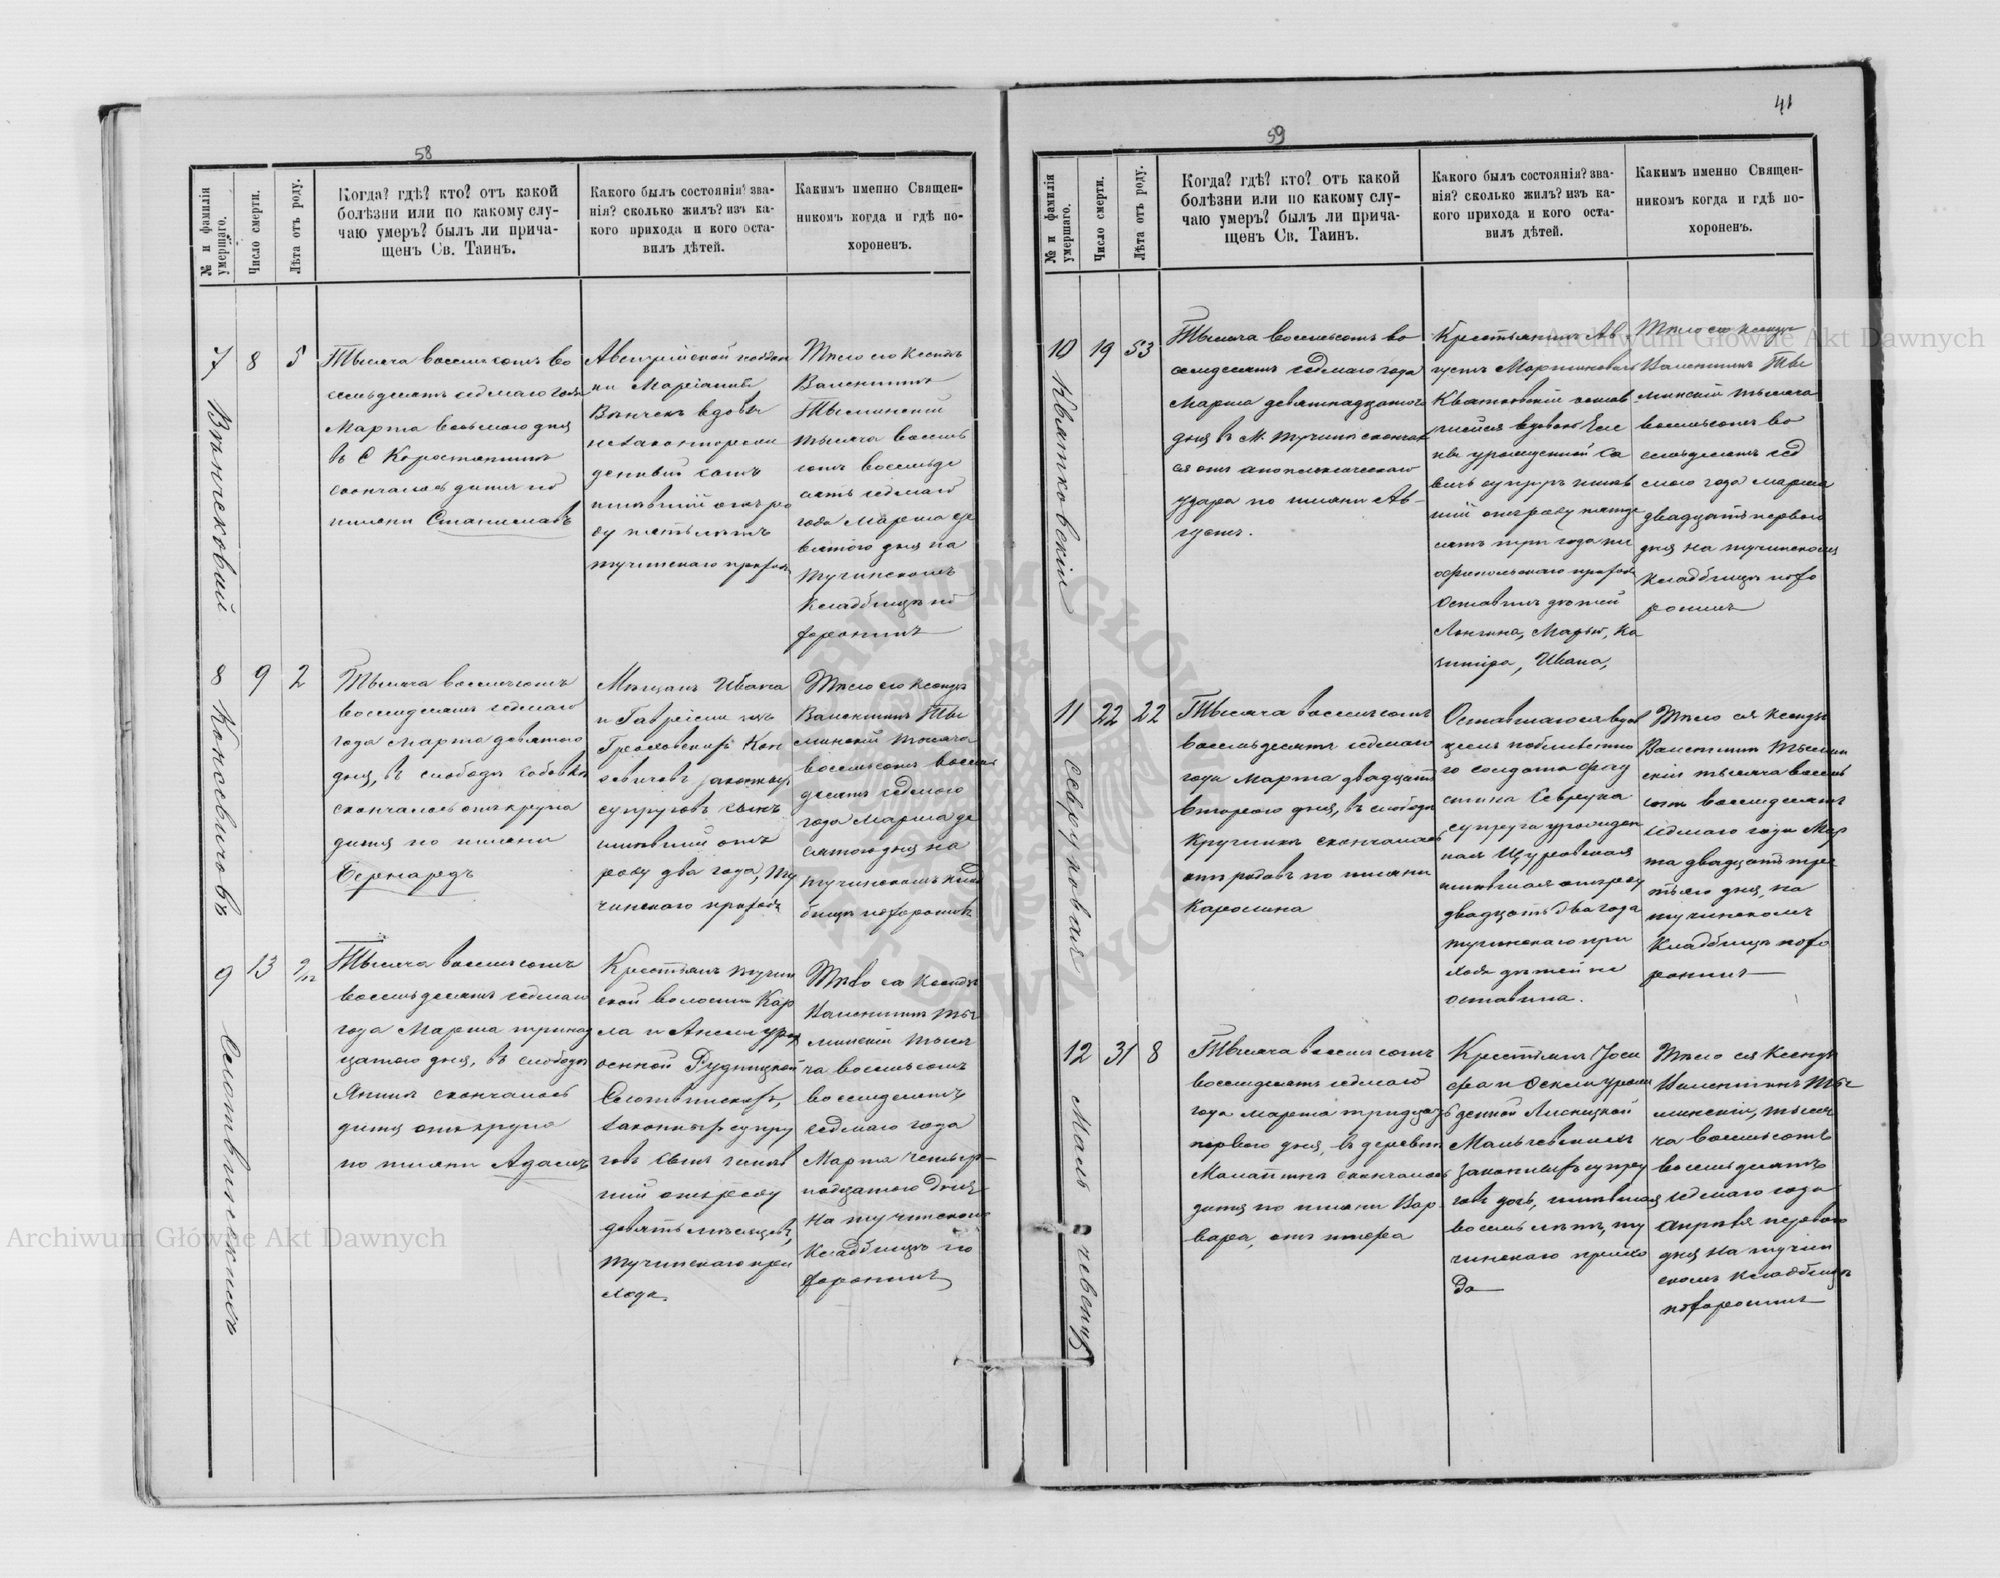 58
№ и фамилія умершаго.
Число смерти.
Лѣта отъ роду.
Когда? гдѣ? кто? отъ какой
болѣзни или по какому слу-
чаю умеръ? былъ ли прича-
щенъ Св. Таинъ.
Какого былъ состоянія? зва-
нія? сколько жилъ? изъ ка-
кого прихода и кого оста-
вилъ дѣтей.
Какимъ именно Священ-
никомъ когда и гдѣ по-
хороненъ.
7
8
5
Тысяча восемьсотъ во
семьдесятъ седмаго года
Марта восьмаго дня
въ С
скончалось дитя по
имени Станиславъ
Австрійской поддан
ки Маріанны
вдовы
незаконнорож
денный сынъ
имѣвшій отъ ро
ду пять лѣтъ
тучинскаго прихода
Тѣло его Ксендзъ
Валентинъ
тысяча восемь
сотъ восемьде
сятъ седмаго
года Марта де
вятого дня на
Тучинскомъ
Кладбищѣ по
хоронилъ
8 Копсевичовъ
9
2
Тысяча восемьсотъ
восемдесятъ седмаго
года Марта девятого
дня, въ слободѣ
скончалось отъ крупа
дитя по имени
Бернардъ
Мѣщанъ Ивана
и Гавріели изъ
законныхъ
супруговъ сынъ
имѣвшій отъ
роду два года, Ту
чинскаго прихода
Тѣло его Ксендзъ
Валентинъ
тысяча
восемьсотъ восемь
десятъ седмого
года Марта де
сятого дня на
тучинскомъ клад
бищѣ похоронилъ
9
13
9/12
Тысяча восемьсотъ
восемьдесятъ седмаго
года Марта тринад
цатого дня, въ слободѣ
скончалось
дитя отъ крупа
по имени Адамъ
Крестьянъ тучин
ской волости Кар
ла и
Рудницкой
законныхъ супру
говъ сынъ имѣв
шій отъ роду
девять мѣсяцевъ,
тучинскаго при
хода.
Тѣло его Ксендзъ
Валентинъ
тыся
ча восемьсотъ
восемдесятъ
седмаго года
Марта четыр-
надцатого дня
на тучинскомъ
Кладбищѣ по
хоронилъ
41
59
№ и фамилія умершаго.
Число смерти.
Лѣта отъ роду.
Когда? гдѣ? кто? отъ какой
болѣзни или по какому слу-
чаю умеръ? былъ ли прича-
щенъ Св. Таинъ.
Какого былъ состоянія? зва-
нія? сколько жилъ? изъ ка-
кого прихода и кого оста-
вилъ дѣтей.
Какимъ именно Священ-
никомъ когда и гдѣ по-
хороненъ.
10 Квятковскій
19
53
Тысяча восемьсотъ во
семдесятъ седмаго года
Марта девятнадцатого
дня въ М. Тучинѣ скончал
ся отъ апоплексическаго
удара по имени Ав-
густъ.
Крестьянинъ Ав
густъ Мартиновичъ
Квятковскій остав
шейся вдовою
урожденной Са
вичъ супругъ имѣв
шій отъ роду пятьде
сятъ три года
прихода
Оставилъ дѣтей
Лонгина, Марью, Ка
зимира, Ивана,
Тѣло его Ксендзъ
Валентинъ
тысяча
восемьсотъ во
семьдесятъ сед
мого года марта
двадцать первого
дня на тучинскомъ
Кладбищѣ похо
ронилъ
11 Севруковая
22
22
Тысяча восемьсотъ
восемьдесятъ седмаго
года Марта двадцать
второго дня, въ слободѣ
скончалась
отъ родовъ по имени
Каролина
Оставшагося вдов
цемъ
го солдата
Севрука
супруга урожден
ная Щуровская
имѣвшая отъ роду
двадцать два года
тучинскаго при
хода дѣтей не
оставила.
Тѣло ея Ксендзъ
Валентинъ
тысяча восемь
сотъ восемдесятъ
седмаго года Мар
та двадцать тре
тьяго дня, на
тучинскомъ
Кладбищѣ похо
ронилъ
12 Мальчевская
31
8
Тысяча восемьсотъ
восемдесятъ седмаго
года марта тридцать
первого дня, въ деревнѣ
скончалась
дитя по имени Вар
вара, отъ тифа
Крестьянъ Іоси
фа и урож
денной Лисницкой
Мальчевскихъ
законныхъ супру
говъ дочь, имѣвшая
восемь лѣтъ, ту
чинскаго прихо
да
Тѣло ея Ксендзъ
Валентинъ
тыся
ча восемьсотъ
восемьдесятъ
седмаго года
апрѣля первого
дня на тучин
скомъ кладбищѣ
похоронилъ
Archiwum Główne Akt Dawnych
Archiwum Główne Akt Dawnych
ARCHIWUM GŁÓWNE AKT DAWNYCH